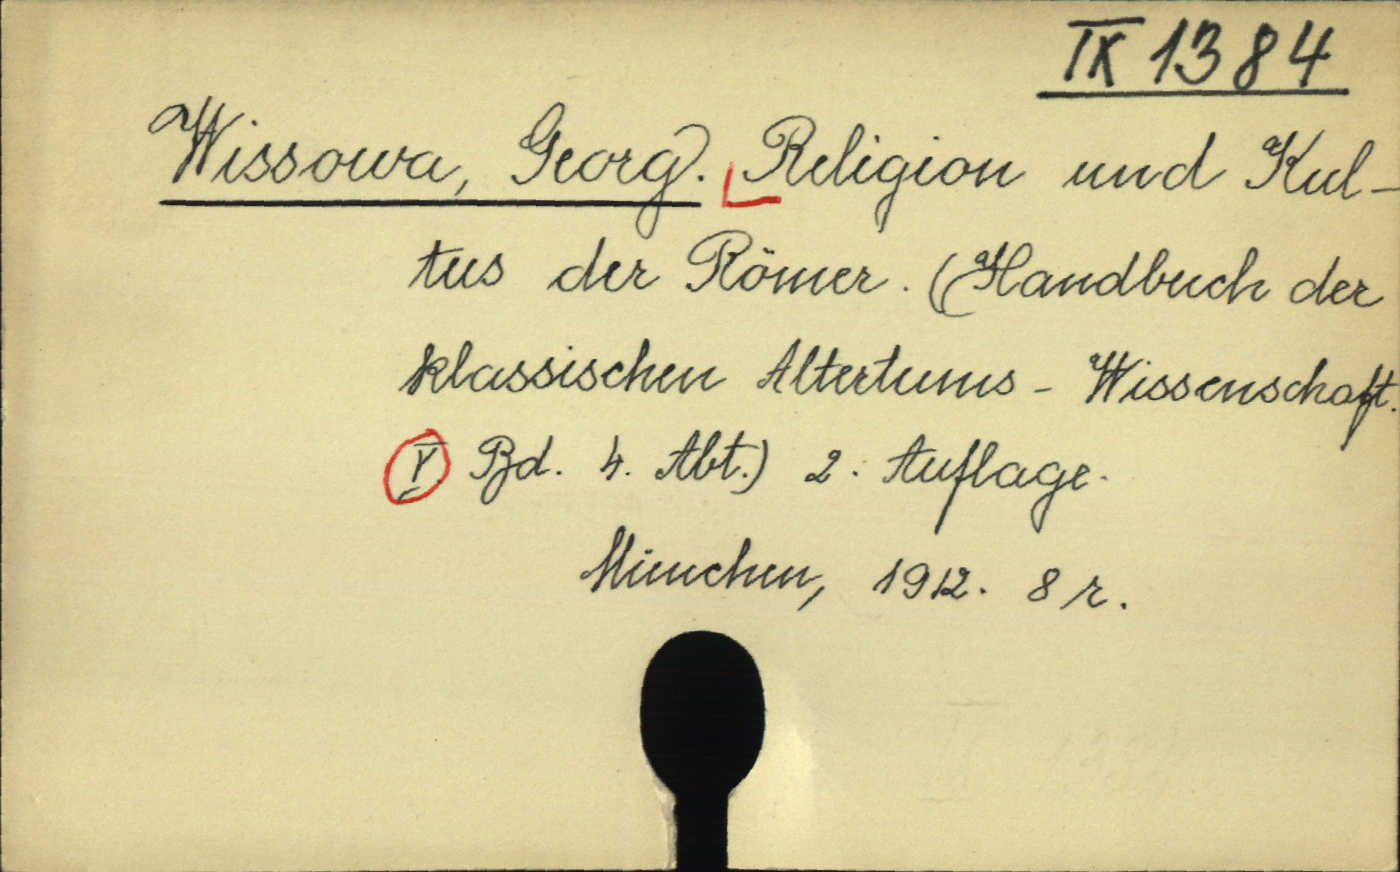 IX 1384
Wissowa, Georg. Religion und Kul-
tus der Römer. (Handbuch der
klassischen Altertums - Wissenschaft.
V Bd. 4. Abt.) 2. Auflage.
München, 1912. 8 r.